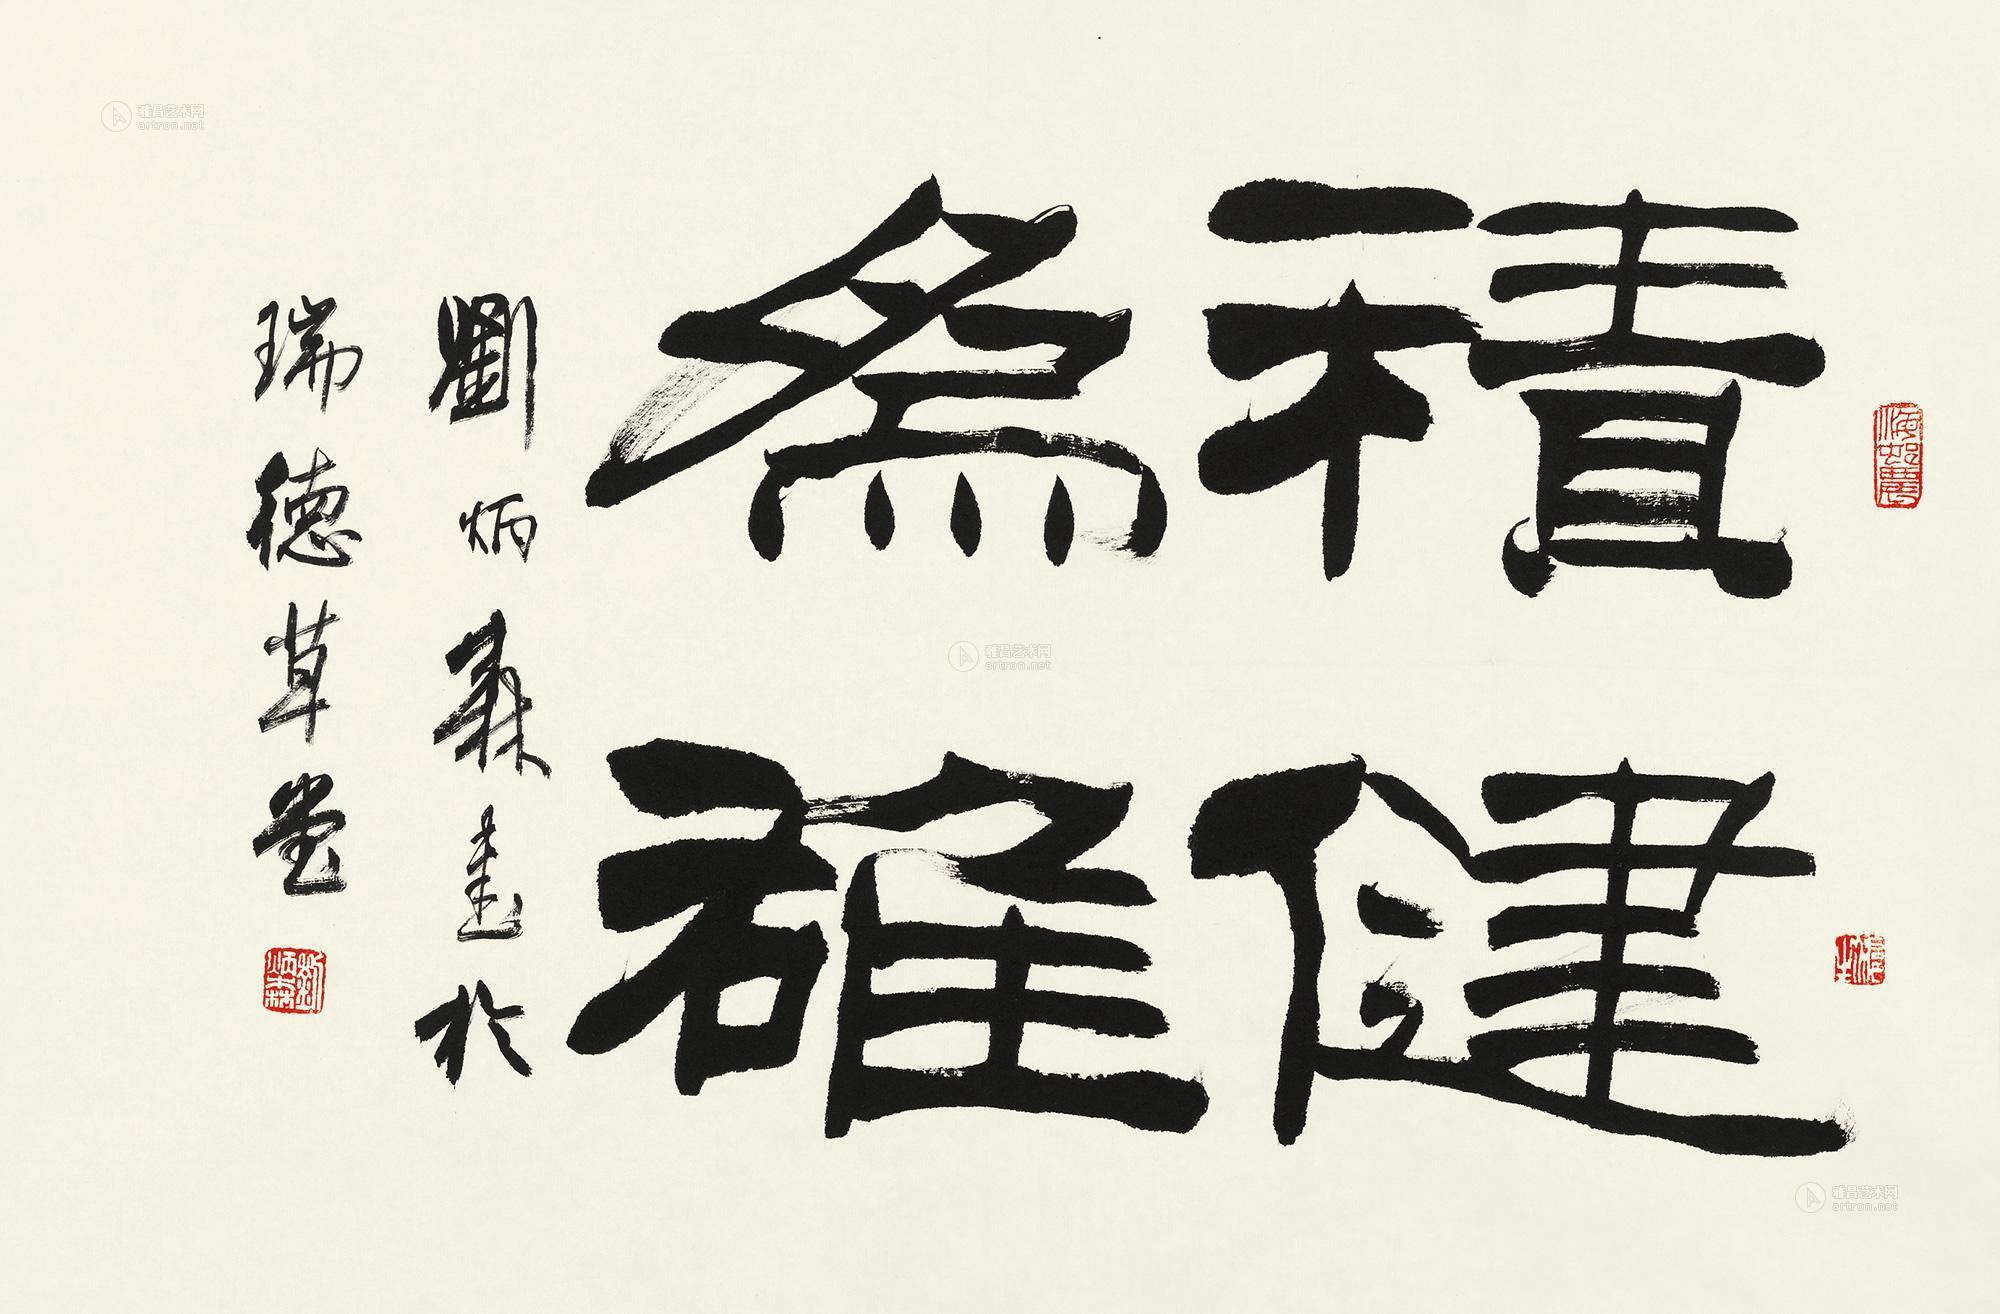 積健
為雄
劉炳森書於
瑞德草堂
劉炳森
雅昌艺术网
artron.net
雅昌艺术网
artron.net
雅昌艺术网
artron.net